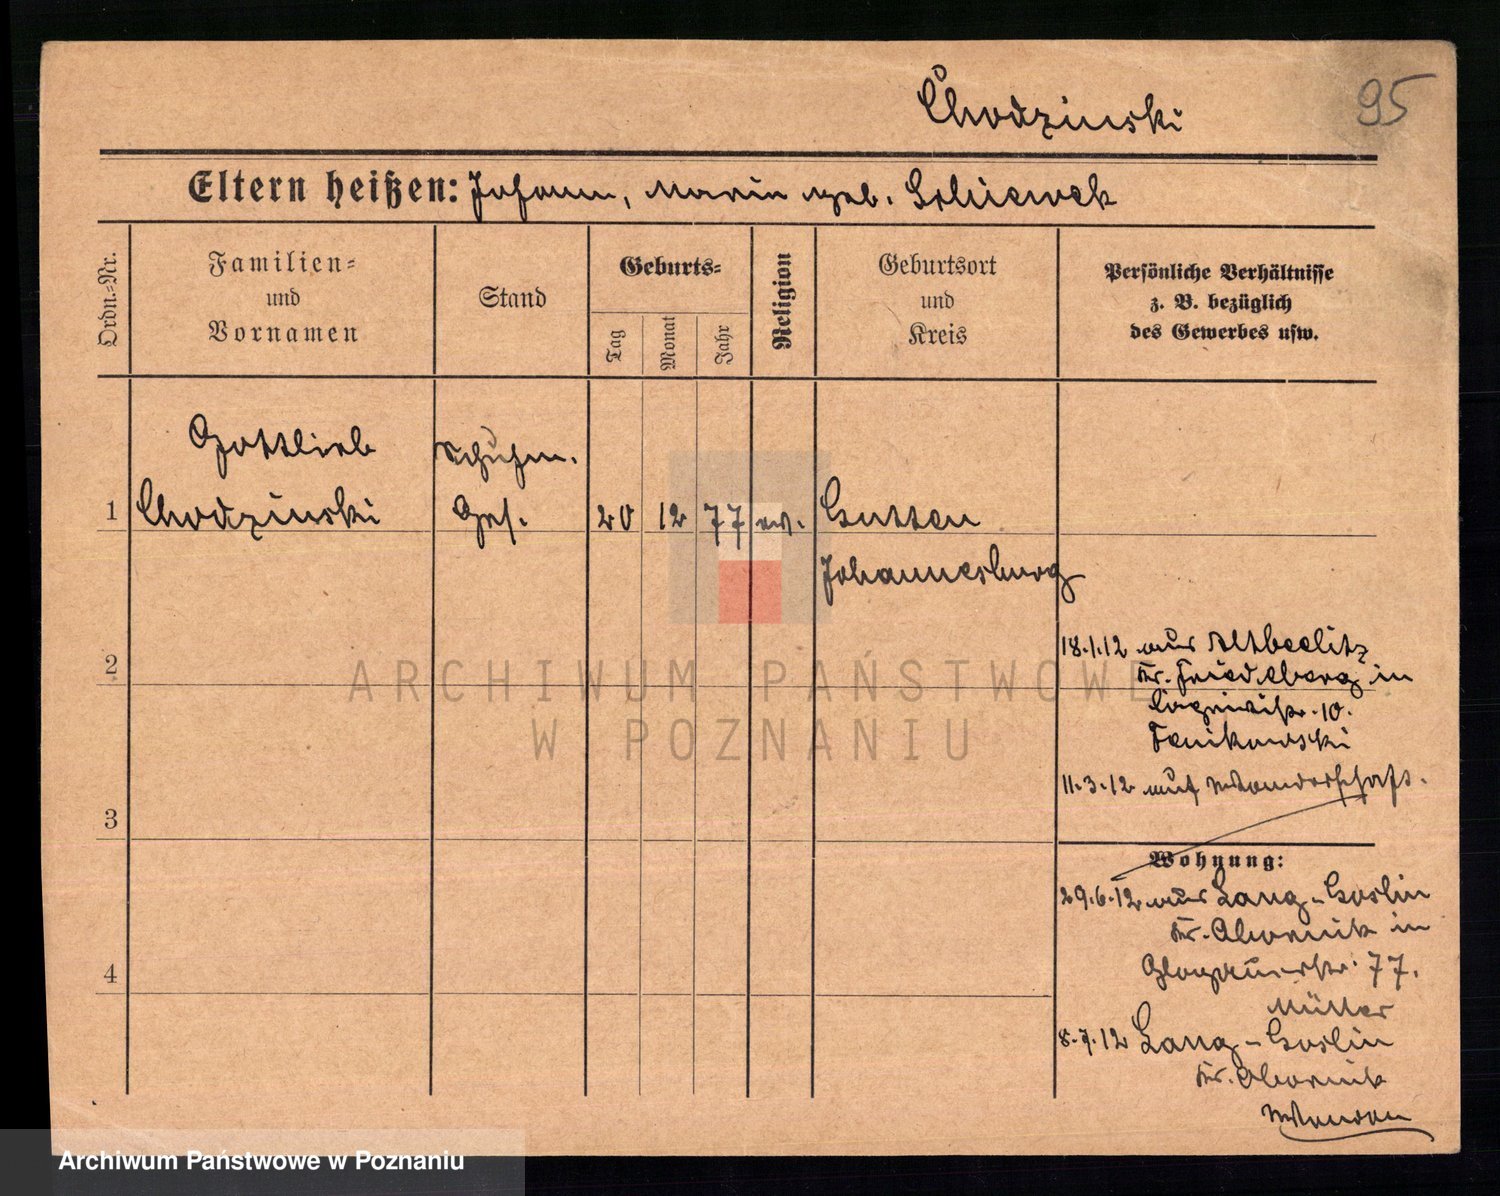 Chodzinski
95
Eltern heißen: Johann, Marie geb.
Ordn.-Nr.
Familien-
und
Vornamen
Stand
Geburts-
Tag
Monat
Jahr
Religion
Geburtsort
und
Kreis
Persönliche Verhältnisse
z. B. bezüglich
des Gewerbes usw.
Gottlieb
Schuhm.
1
Chodzinski
Ges.
20
12
77
ev.
Gutten
Johannesburg
2
18.1.12 aus Altbeelitz
Kr. Friedeberg in
10.
Fenikowski
11.3.12 auf Wanderschaft.
3
Wohnung:
29.6.12 aus Lang-Goslin
Kr. Obornik in
Glogauerstr. 77.
Müller
4
8.7.12 Lang-Goslin
Kr. Obornik
ARCHIWUM PAŃSTWOWE
W POZNANIU
Archiwum Państwowe w Poznaniu